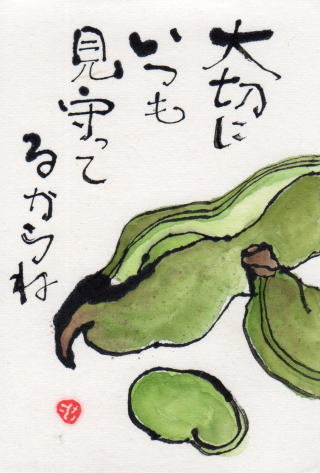 大切に
いつも
見守って
るからね